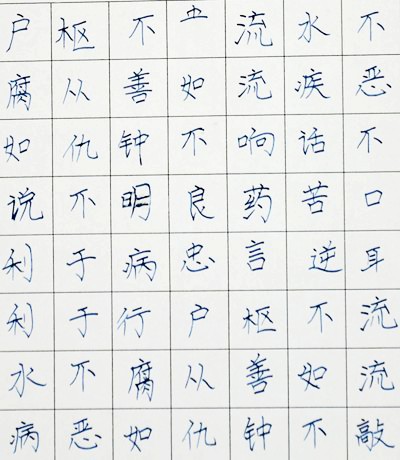 户枢不流水不
腐从善如流疾恶
如仇钟不响话不
说不明良药苦口
利于病忠言逆耳
利于行户枢不流
水不腐从善如流
病恶如仇钟不敲